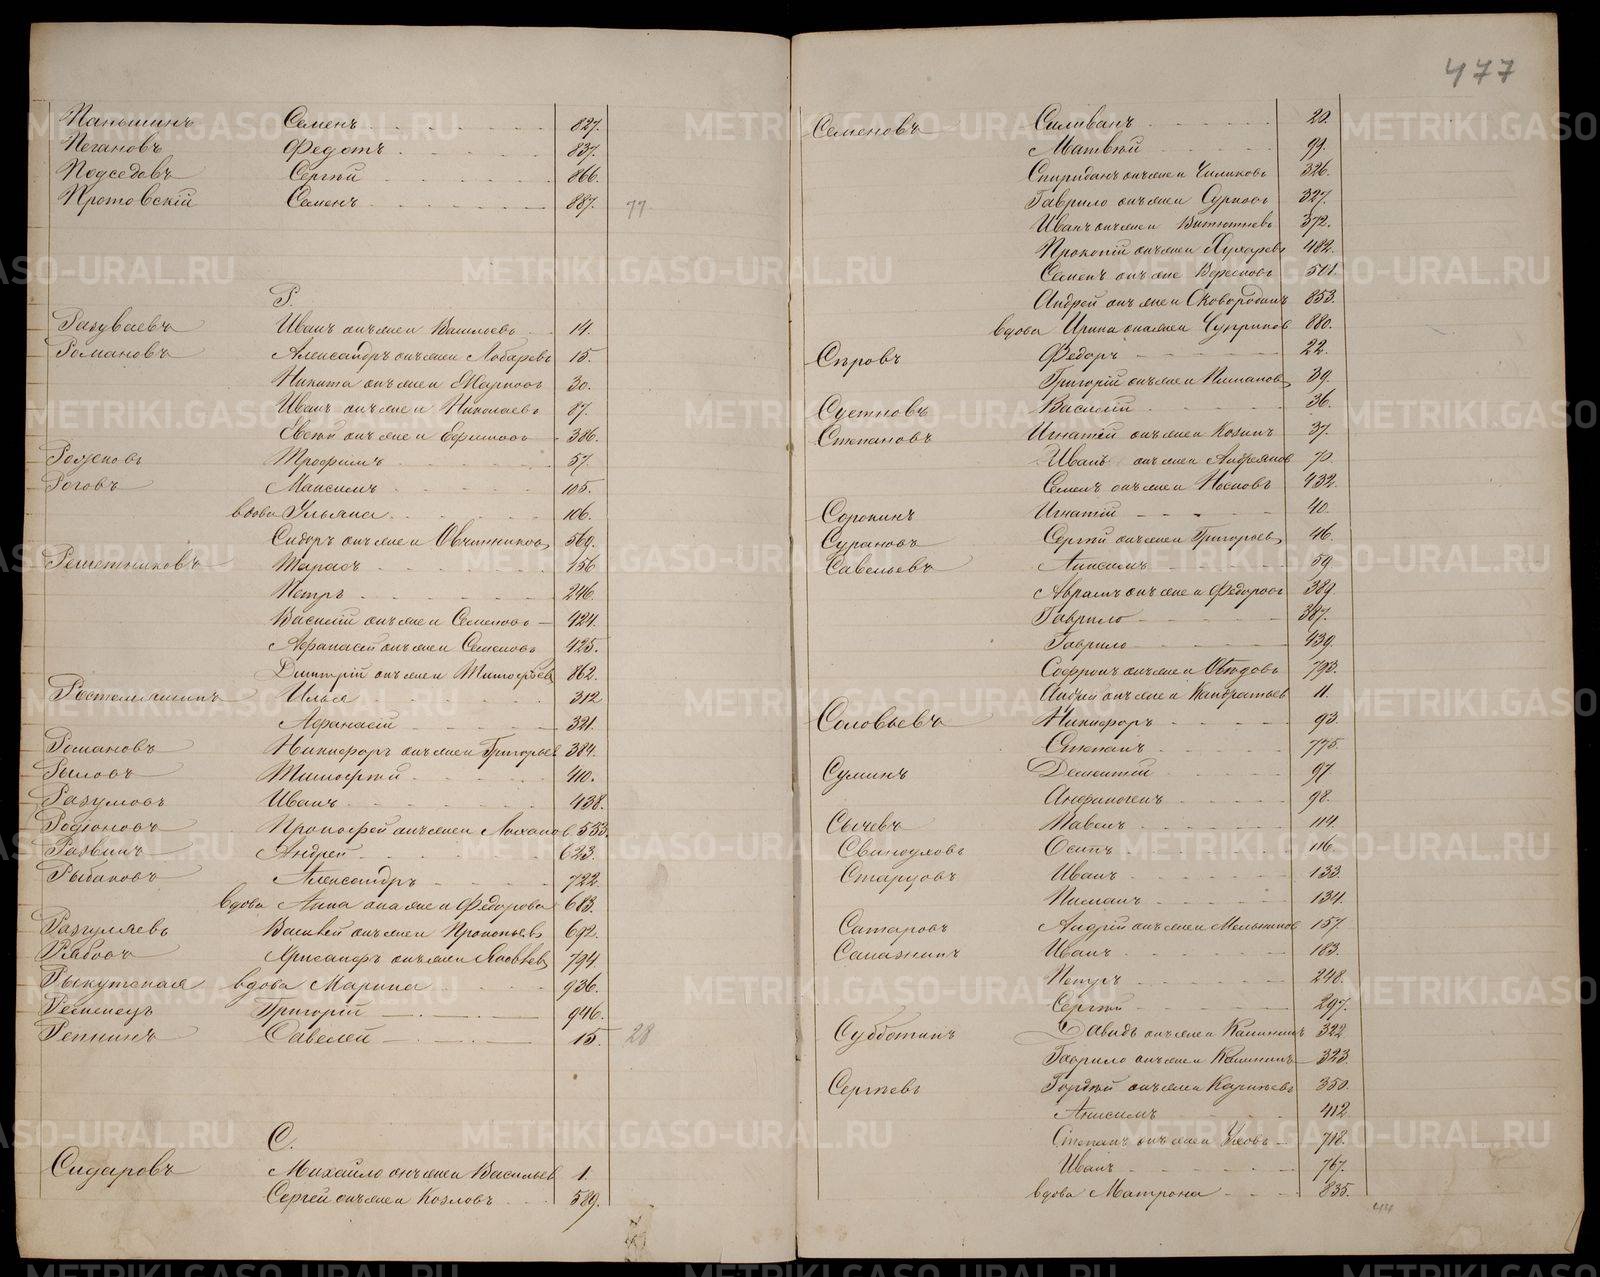 Паньшинъ Семенъ 827.
Пегановъ Федотъ 837.
Подседовъ Сергѣй 866.
Протовскій Семенъ 887. 77
Р.
Разуваевъ Иванъ онъ же и Васильевъ 14.
Романовъ Александръ онъ же и Лобаревъ 15.
Никита онъ же и Марковъ 30.
Иванъ онъ же и Николаевъ 87.
Евсѣй онъ же и Ефимовъ 386.
Роженовъ Трофимъ 57.
Роговъ Максимъ 105.
вдова Ульяна 106.
Сидоръ онъ же и Овчинниковъ 560.
Решетниковъ Тарасъ 156
Петръ 246.
Василій онъ же и Семеновъ 424.
Афанасій онъ же и Семеновъ 425.
Дмитрій онъ же и Тимофеевъ 862.
Ростомашинъ Илья 312
Афанасій 321.
Романовъ Никифоръ онъ же и Григорьевъ 384.
Рыловъ Тимофей 410.
Разумовъ Иванъ 438.
Родіоновъ Прокофей онъ же и Лохановъ 553.
Развинъ Андрей 623.
Рыбаковъ Александръ 722
вдова Анна она же и Федорова 683.
Разгуляевъ онъ же и Прокопьевъ 692.
Рябовъ Хрисанфъ онъ же и Яковлевъ 794
Рыкутская вдова Марина 936.
Ременецъ Григорій 946.
Репнинъ Савелей 15. 28
С.
Сидаровъ Михайло онъ же и Васильевъ 1.
Сергей онъ же и Козловъ 589.
477
Семеновъ Силиванъ 20.
Матвѣй 99.
Спиридонъ онъ же и Чиликовъ 326.
Гаврило онъ же и Сурковъ 327.
Иванъ онъ же и Витютневъ 372.
Прокопій онъ же и Хухаревъ 482.
Семенъ онъ же Вересновъ 501.
Андрей онъ же и Сковородинъ 853.
вдова Ирина она же и Чуприков 880.
Спровъ Федоръ 22.
Григорій онъ же и Пимановъ 39.
Суетновъ Василій 36.
Степановъ Игнатей онъ же и Козинъ 37.
Иванъ онъ же и Андреяновъ 70.
Семенъ онъ же и Носковъ 432.
Сорокинъ Игнатій 40.
Сурановъ Сергѣй онъ же и Григорьевъ 46.
Савельевъ Анисимъ 59
Аврамъ онъ же и Федоровъ 389.
Гаврило 387.
Гаврило 439.
Софронъ онъ же и Обѣдовъ 793.
Андрей онъ же и Кандратьев 11.
Соловьевъ Никифоръ 93.
Степанъ 775.
Суминъ Дементій 97.
Анфиногенъ 98.
Сычевъ Павелъ 114.
Свиноуховъ Осипъ 116.
Старцовъ Иванъ 133.
Пиманъ 134.
Сатаровъ Андрей онъ же и Мельников 157.
Салазкинъ Иванъ 183.
Петръ 248.
Сергѣй 297.
Субботинъ Давидъ онъ же и Калининъ 322
Гаврило онъ же и Калининъ 323.
Сергѣевъ Гордѣй онъ же и 350.
Анисимъ 412
Степанъ онъ же и Ужовъ 718.
Иванъ 767.
вдова Матрона 835.
44